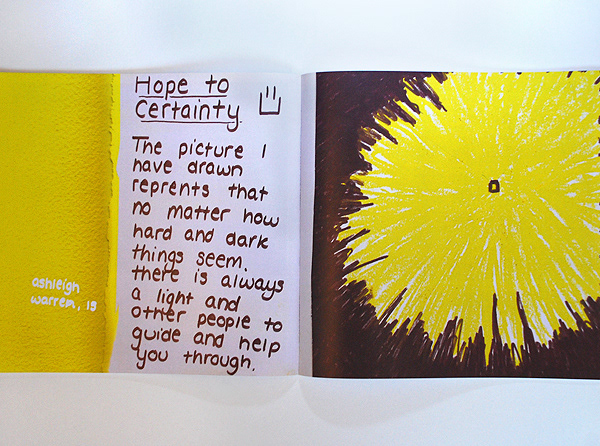 ashleigh
warren, 19
Hope to
Certainty.
The picture I
have drawn
reprents that
no matter how
hard and dark
things seem.
there is always
a light and
other people to
guide and help
you through.